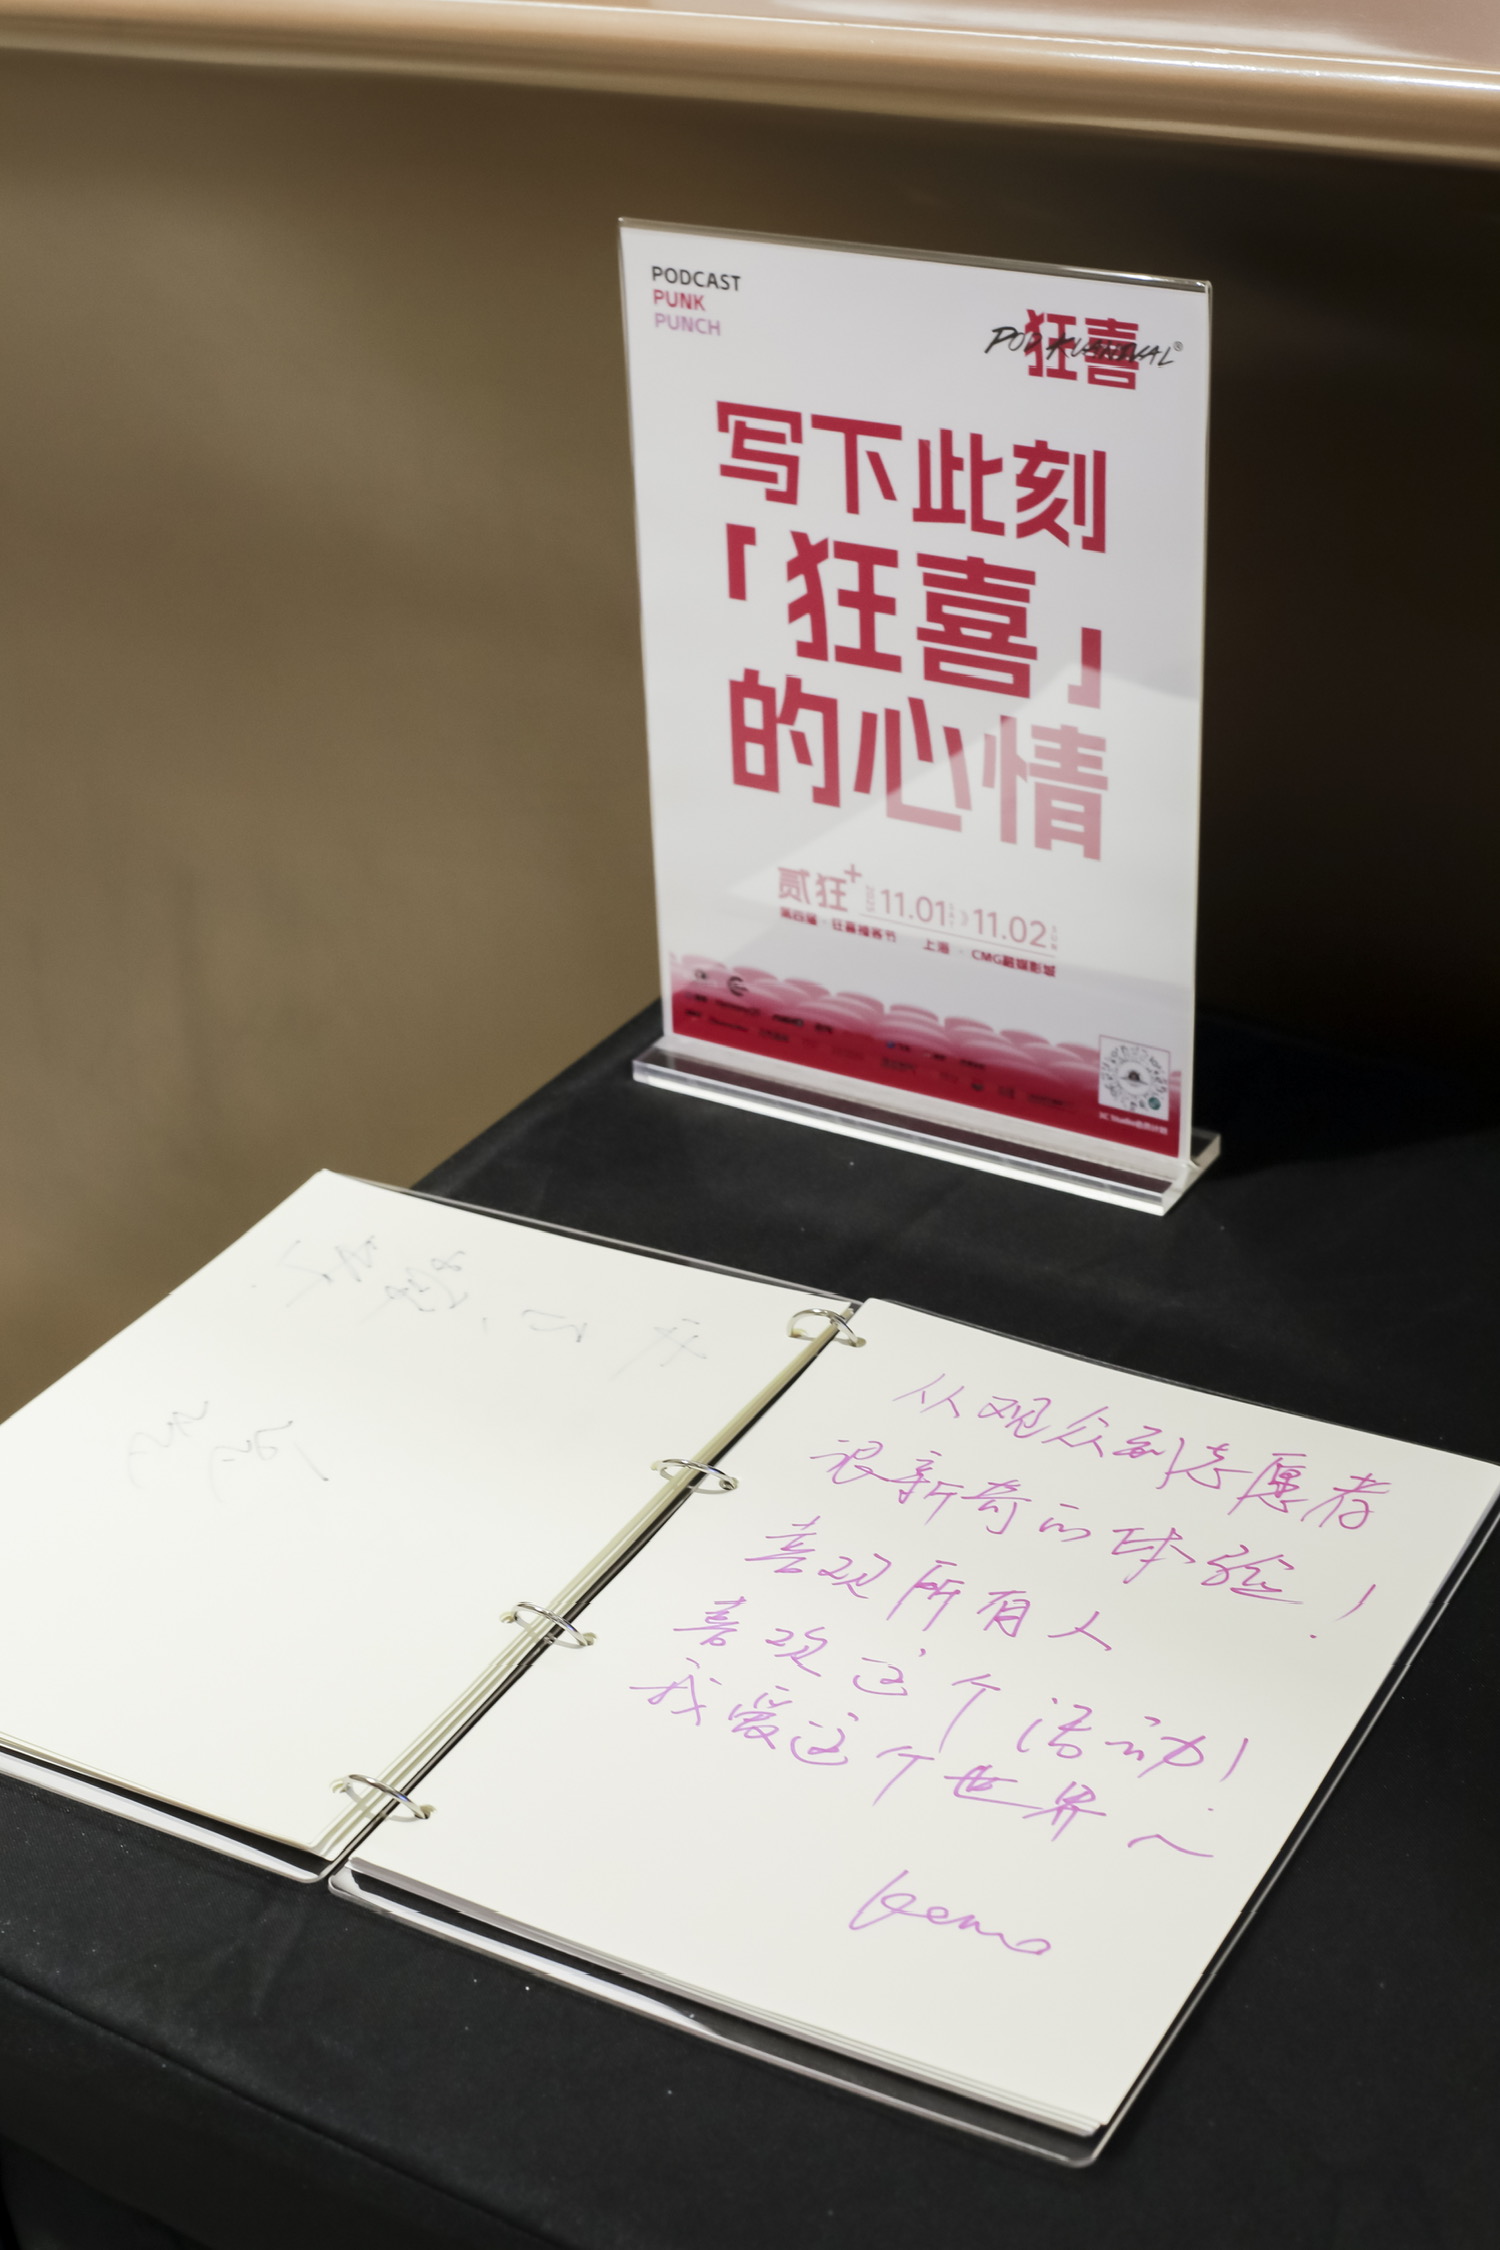 PODCAST
PUNK
PUNCH
狂喜
POD KUANIVAL®
写下此刻
「狂喜」
的心情
贰狂+ 2025 11.01 11.02
第四届·狂喜播客节 上海·CMG融媒影城
从观众到志愿者
很新奇的体验！
喜欢所有人
喜欢这个活动！
我爱这个世界～